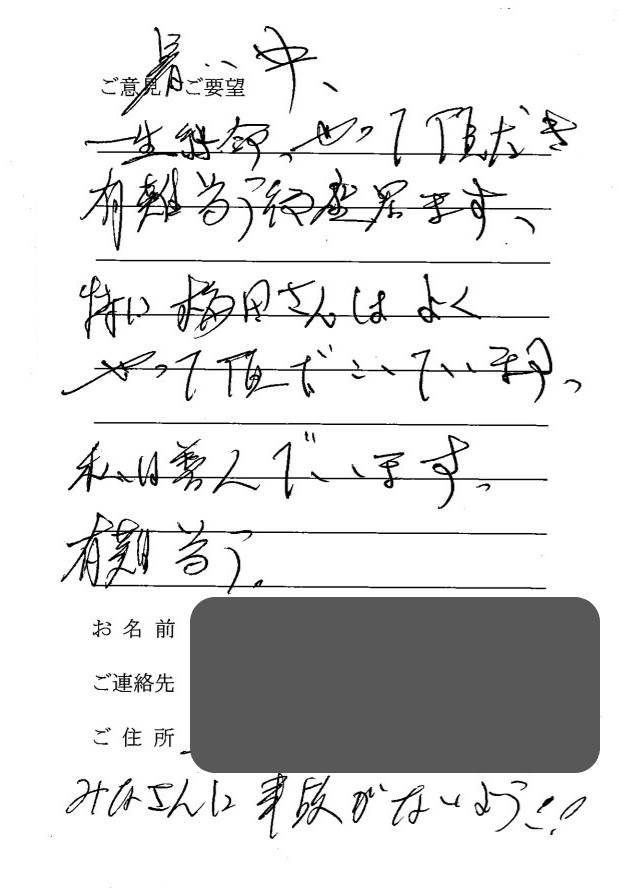 暑い中、
ご意見 ご要望
一生懸命、やって頂だき
有難当う御座居ます、
特に梅田さんはよく
やって頂だいています。
私は喜んでいます。
有難当う。
お名前
ご連絡先
ご住所
みなさんに事故がないよう!!